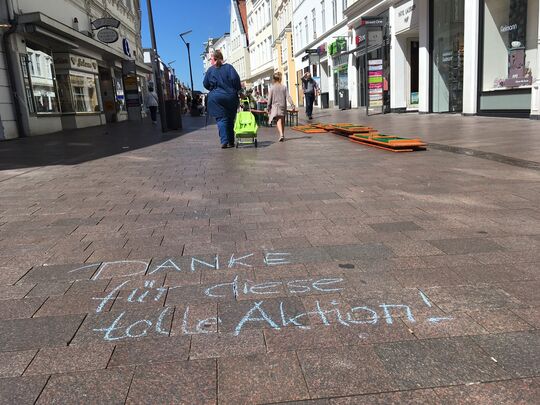 DANKE
für diese
tolle Aktion!